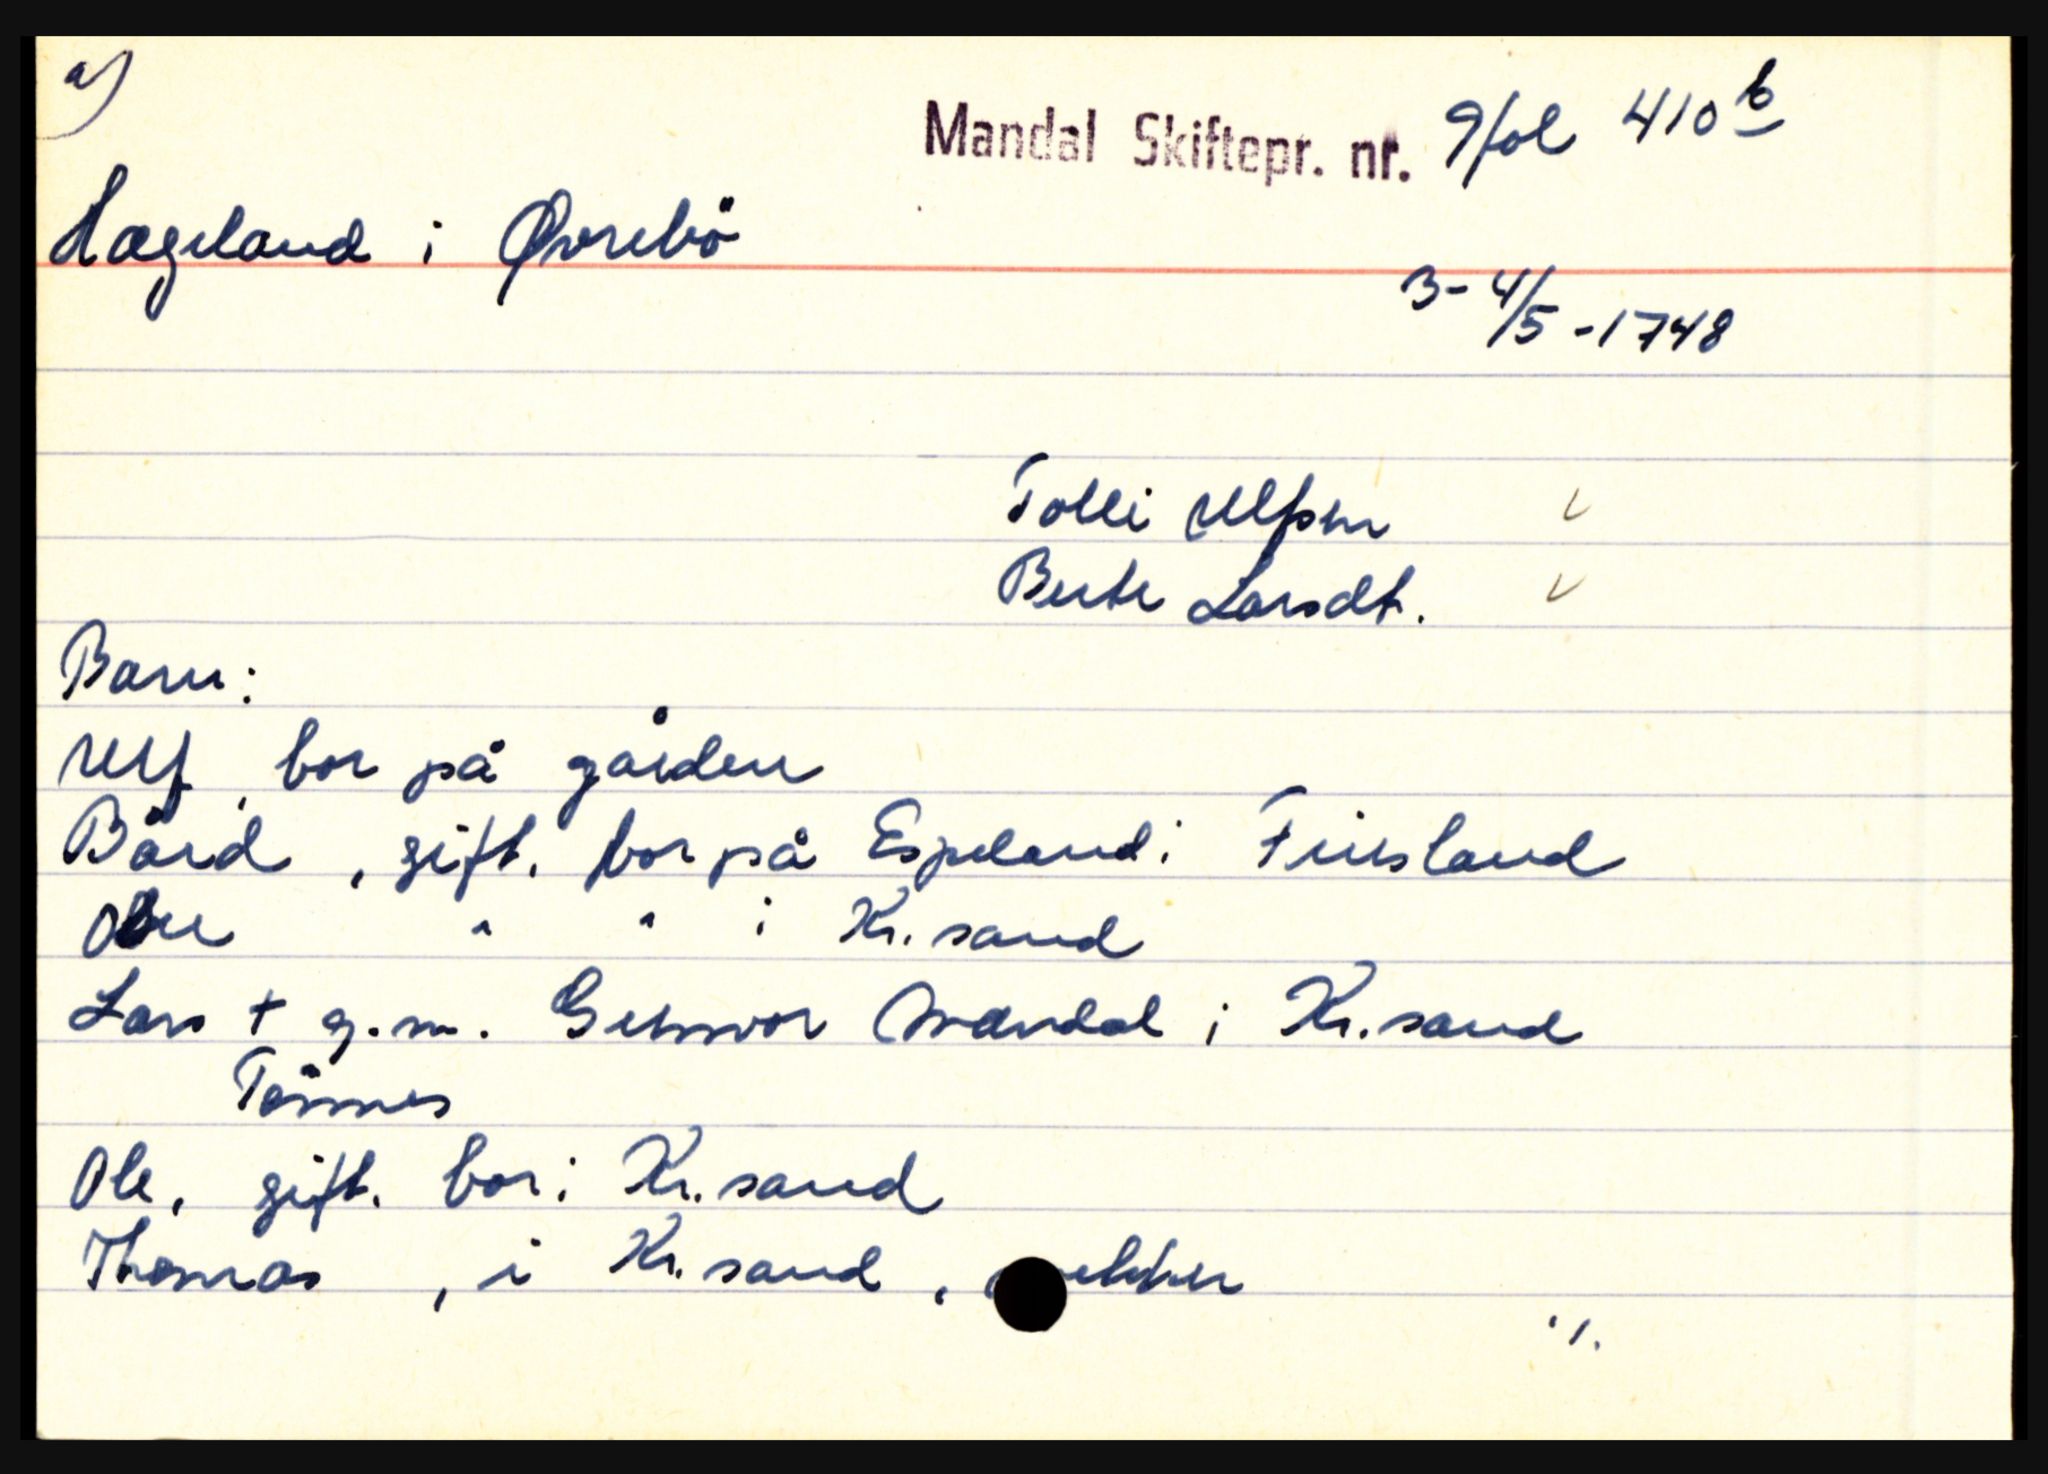 a)
Mandal Skiftepr. nr. 9 fol 410 b
Hægeland i Øvrebö
3-4/5-1748
Tolli Ulfsen ✓
Berte Larsdt. ✓
Barn:
Ulf, bor på gården
Bård, gift. bor på Espeland i Finsland
" " i Kr.sand
Lars + g.m. Gunvor Mandal i Kr.sand
Tönnes
Ole, gift. bor i Kr.sand
Thomas, i Kr.sand,
./.